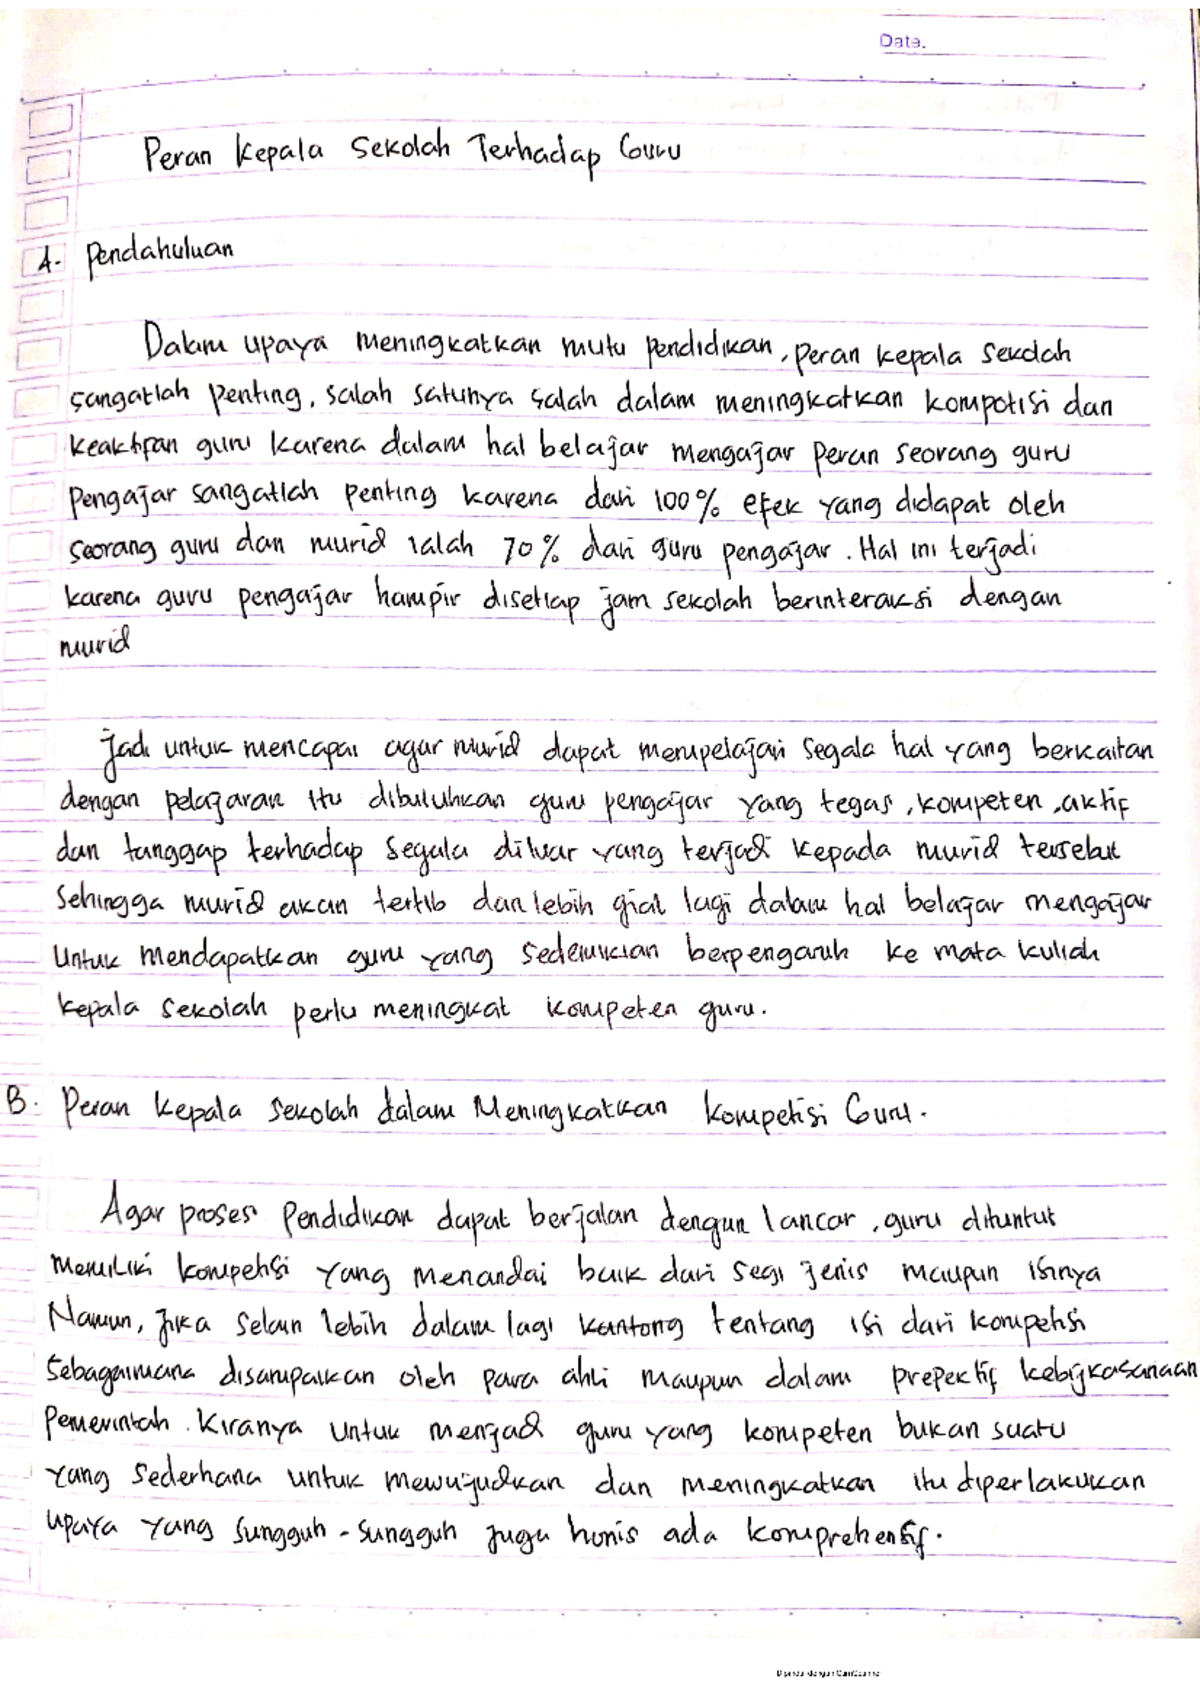 Date.
Peran Kepala Sekolah Terhadap Guru
A. Pendahuluan
Dalam upaya meningkatkan mutu pendidikan, peran kepala sekolah
sangatlah penting, salah satunya salah dalam meningkatkan kompotisi dan
keaktifan guru karena dalam hal belajar mengajar peran seorang guru
pengajar sangatlah penting karena dari 100% efek yang didapat oleh
seorang guru dan murid ialah 70% dari guru pengajar. Hal ini terjadi
karena guru pengajar hampir disetiap jam sekolah berinteraksi dengan
murid
Jadi untuk mencapai agar murid dapat mempelajari segala hal yang berkaitan
dengan pelajaran itu dibutuhkan guru pengajar yang tegas, kompeten, aktif
dan tanggap terhadap segala diluar yang terjadi kepada murid tersebut
sehingga murid akan tertib dan lebih giat lagi dalam hal belajar mengajar
untuk mendapatkan guru yang sedemikian berpengaruh ke mata kuliah
kepala sekolah perlu meningkat kompeten guru.
B. Peran kepala sekolah dalam Meningkatkan kompetisi Guru.
Agar proses pendidikan dapat berjalan dengan lancar, guru dituntut
memiliki kompetisi yang menandai baik dari segi jenis maupun isinya
Namun, jika selain lebih dalam lagi kantong tentang isi dari kompetisi
sebagaimana disampaikan oleh para ahli maupun dalam prepektif kebijkasanaan
pemerintah. Kiranya untuk menjadi guru yang kompeten bukan suatu
yang sederhana untuk mewujudkan dan meningkatkan itu diperlakukan
upaya yang sungguh-sungguh juga honis ada komprehensif.
Dipindai dengan CamScanner